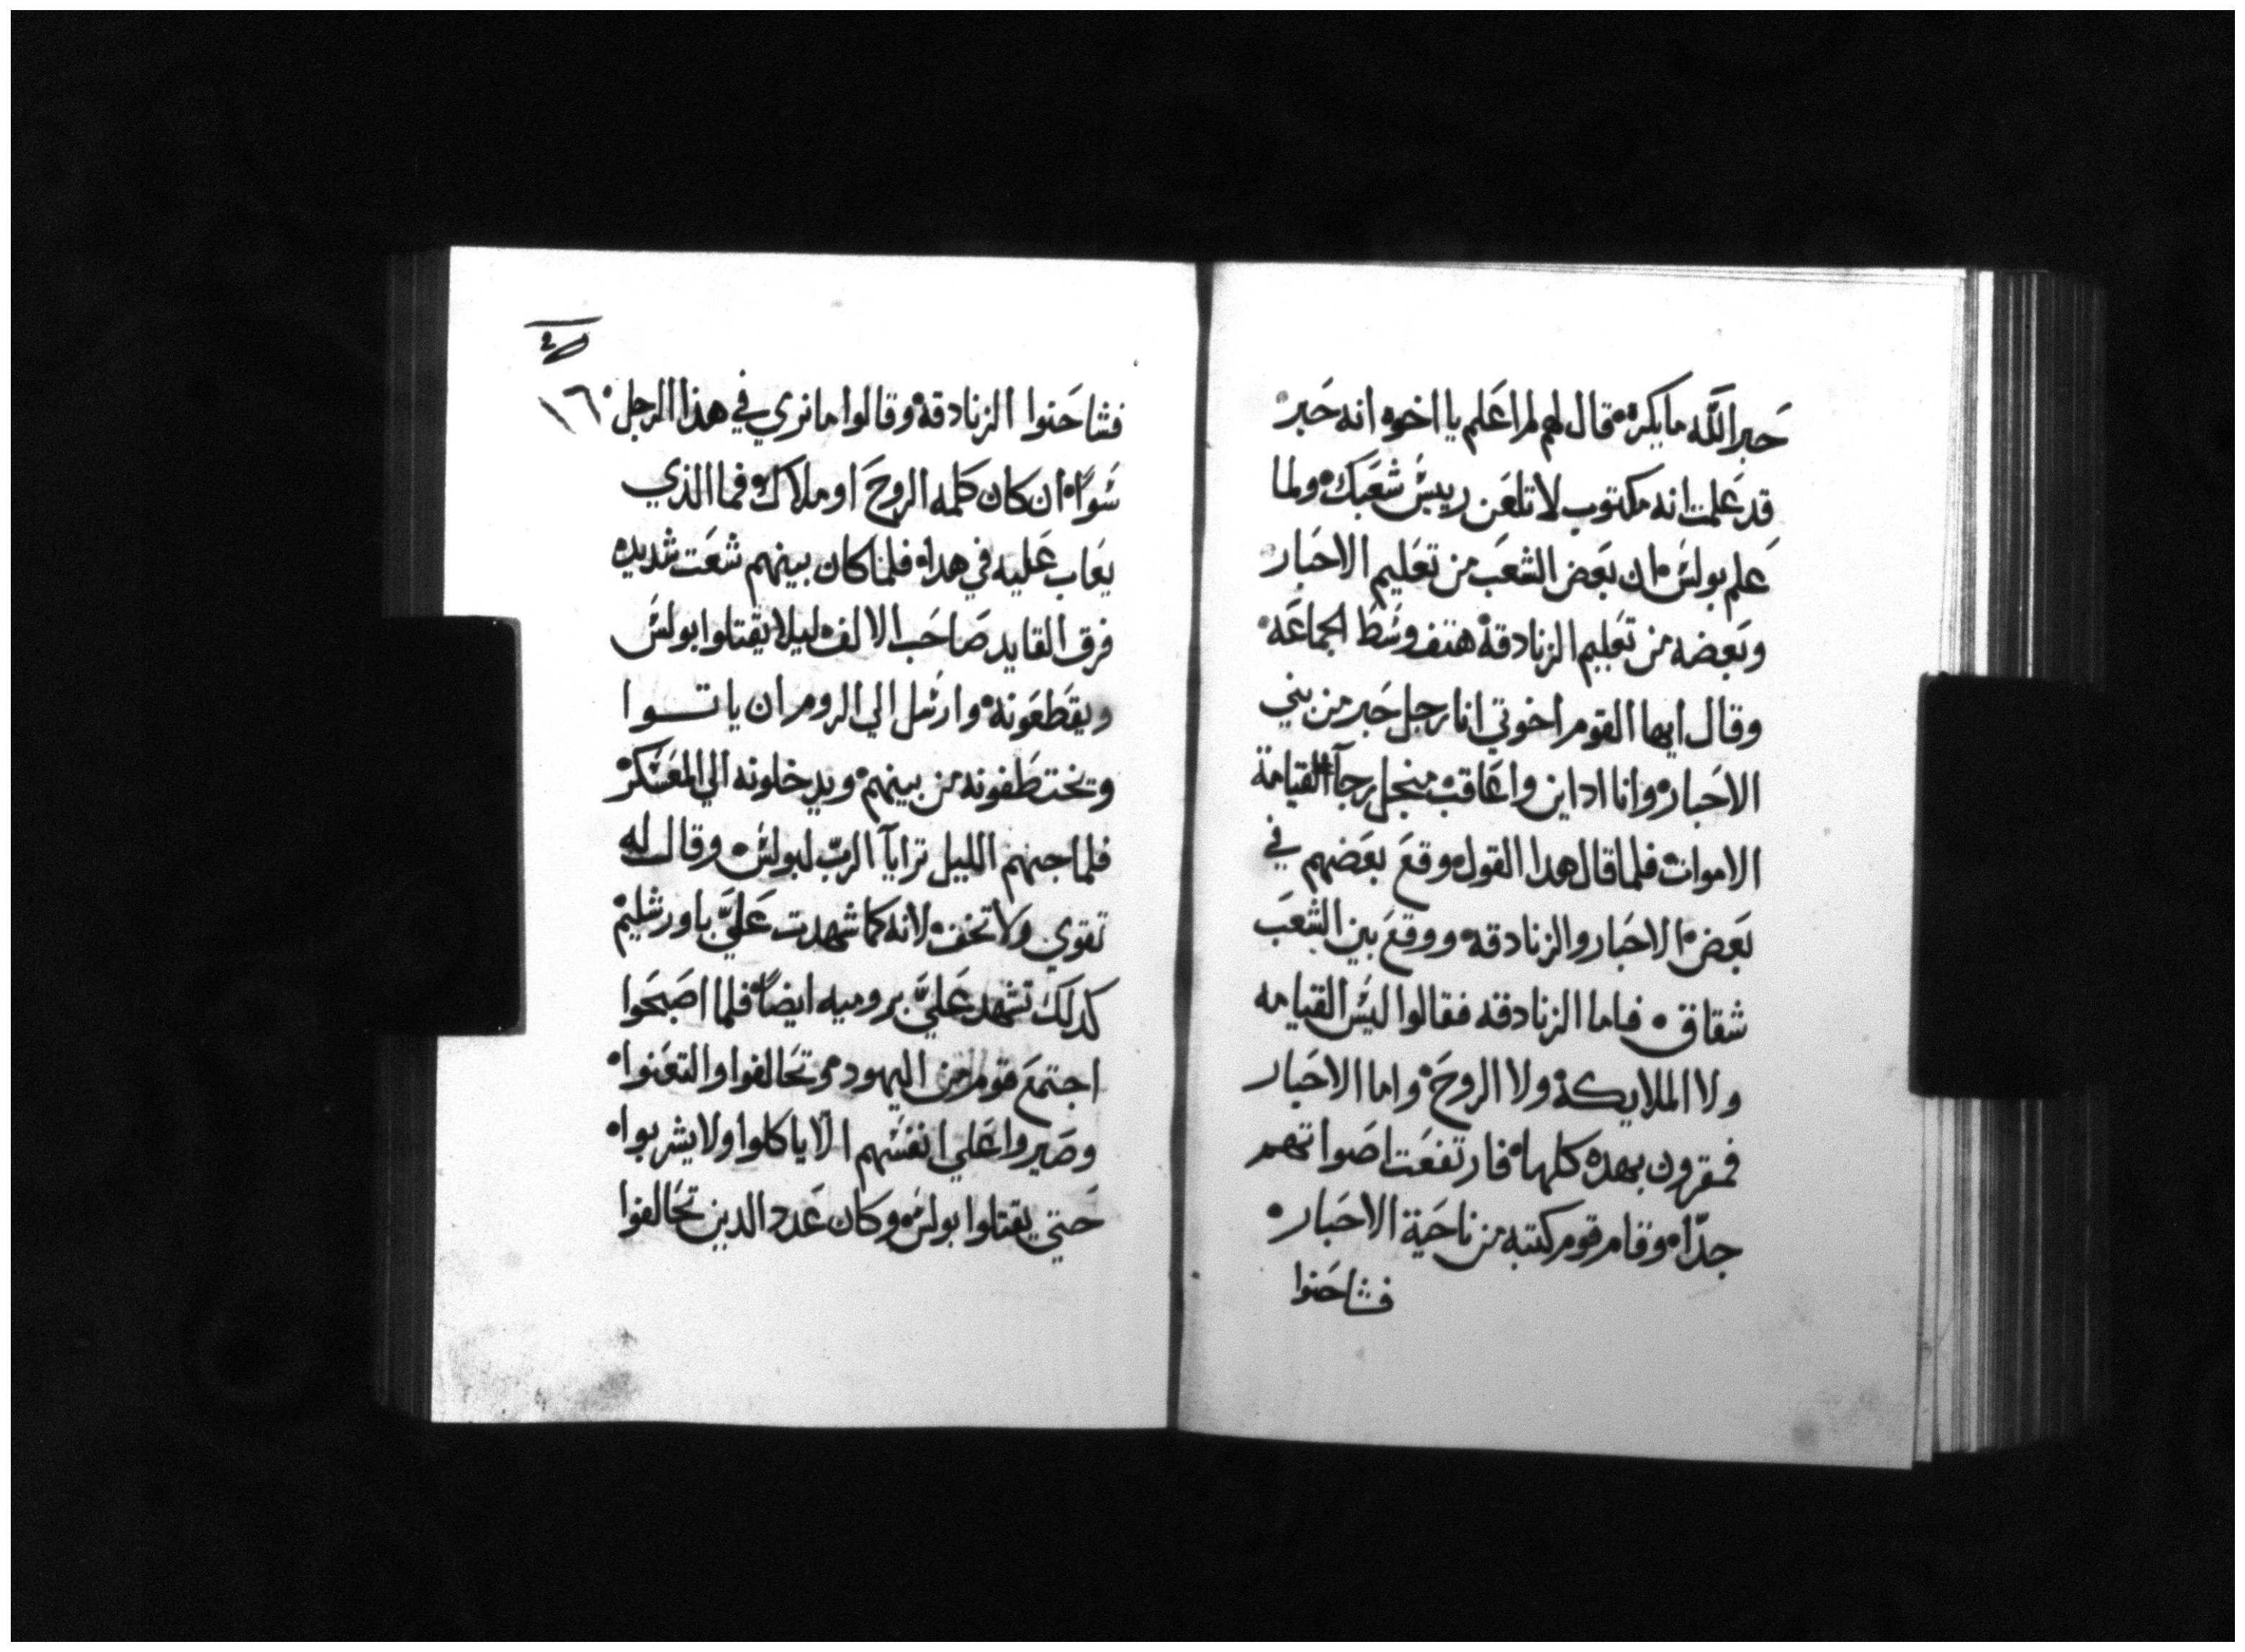 حبر الله ما يكره قال لهم لم اعلم يا اخوه انه حبر
قد علمت انه مكتوب لا تلعن رييس شعبك ولما
علم بولس ان بعض الشعب من تعليم الاحبار
وبعضه من تعليم الزنادقة هتف وسط الجماعه
وقال ايها القوم اخوتي انا رجل حبر من بني
الاحبار وانا اداين واعاقب منجل رجآ القيامة
الاموات فلما قال هدا القول وقع بعضهم في
بعض الاحبار والزنادقه ووقع بين الشعب
شقاق فاما الزنادقه فقالوا ليس القيامه
ولا الملايكة ولا الروح واما الاحبار
فمقرون بهده كلها فارتفعت اصواتهم
جدّا وقام قوم كتبه من ناحية الاحبار
فشاحنوا
١٦
فشاحنوا الزنادقة وقالوا ما نري في هذا الرجل
سوًا ان كان كلمه الروح او ملاك فما الذي
يعاب عليه في هدا فلما كان بينهم شعت شديد
فرق القايد صاحب الالف ليلا يقتلوا بولس
ويقطعونه وارسل الي الروم ان ياتوا
وتختطفونه من بينهم ويدخلونه الي المعسكر
فلما جنهم الليل ترايآ الربّ لبولس وقال له
تقوي ولا تخف لانه كما شهدت عليّ باورشليم
كدلك تشهد عليّ بروميه ايضاً فلما اصبحوا
اجتمع قوم من اليهود وتحالفوا والتعنوا
وصيروا علي انفسهم الّا ياكلوا ولا يشربوا
حتي يقتلوا بولس وكان عدد الدين تحالفوا